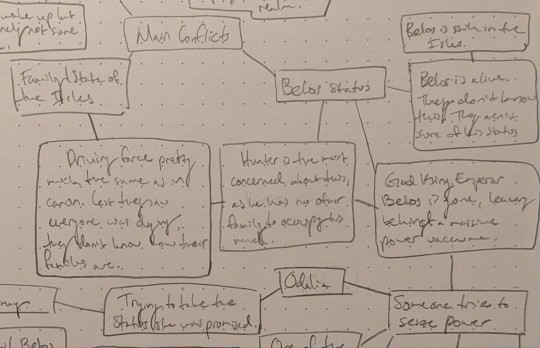 wake up but
not sure
realm.
Main Conflicts
Belos is still in the
Isles.
Family/State of
the Isles
Belos' Status
Belos is alive.
They don't know
this. They aren't
sure of his status
Driving force pretty
much the same as in
canon. Last they saw
everyone was dying
they don't know how their
families are.
Hunter is the most
concerned about this,
as he has no other
family to occupy his
mind.
Good King Emperor
Belos is gone, leaving
behind a massive
power vacuum.
Odalia
Trying to take the
status she was promised.
Someone tries to
seize power
Belos
One of the